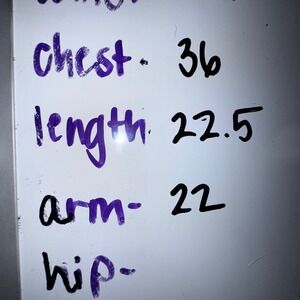 chest. 36
length. 22.5
arm- 22
hip-